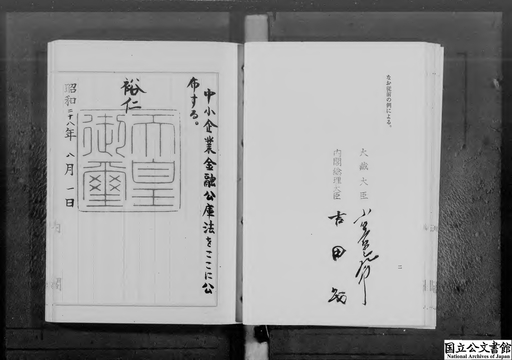 中小企業金融公庫法をここに公
布する。
裕仁
天皇御璽
昭和二十八年八月一日
内閣
なお従前の例による。
大蔵大臣
内閣総理大臣 吉田茂
二
国立公文書館
National Archives of Japan